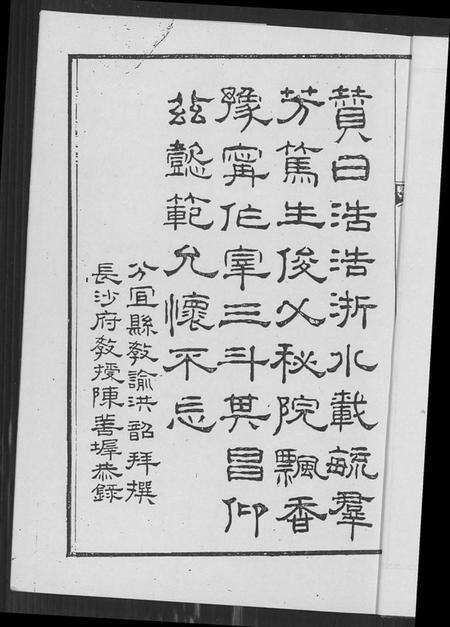 贊曰浩浩浙水載毓羣
芳篤生俊乂秘院飄香
豫寧作宰三斗其昌仰
茲懿範允懷不忘
分宜縣敎諭洪韶拜撰
長沙府敎授陳善墀恭錄